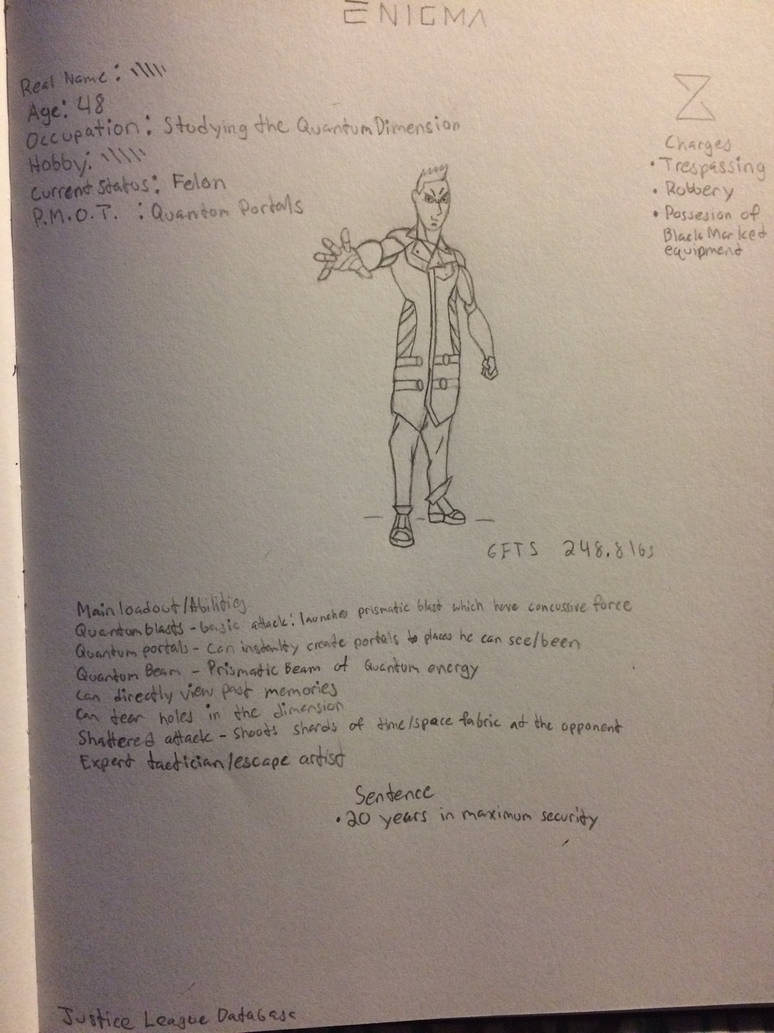 ENIGMA
Real Name:
Age: 48
Occupation: Studying the Quantum Dimension
Hobby:
Current Status: Felon
P.M.O.T. : Quantom Portals
Charges
• Trespassing
• Robbery
• Possesion of
Black Marked
equipment
6FT5 248.8 lbs
Main loadout/Abilities
Quantum blasts - basic attack: launches prismatic blast which have concussive force
Quantum portals - Can instantly create portals to places he can see/been
Quantum Beam - Prismatic Beam of Quantum energy
Can directly view past memories
Can tear holes in the dimension
Shattered attack - Shoots shards of time/space fabric at the opponent
Expert tactician/escape artist
Sentence
• 20 years in maximum security
Justice League Database